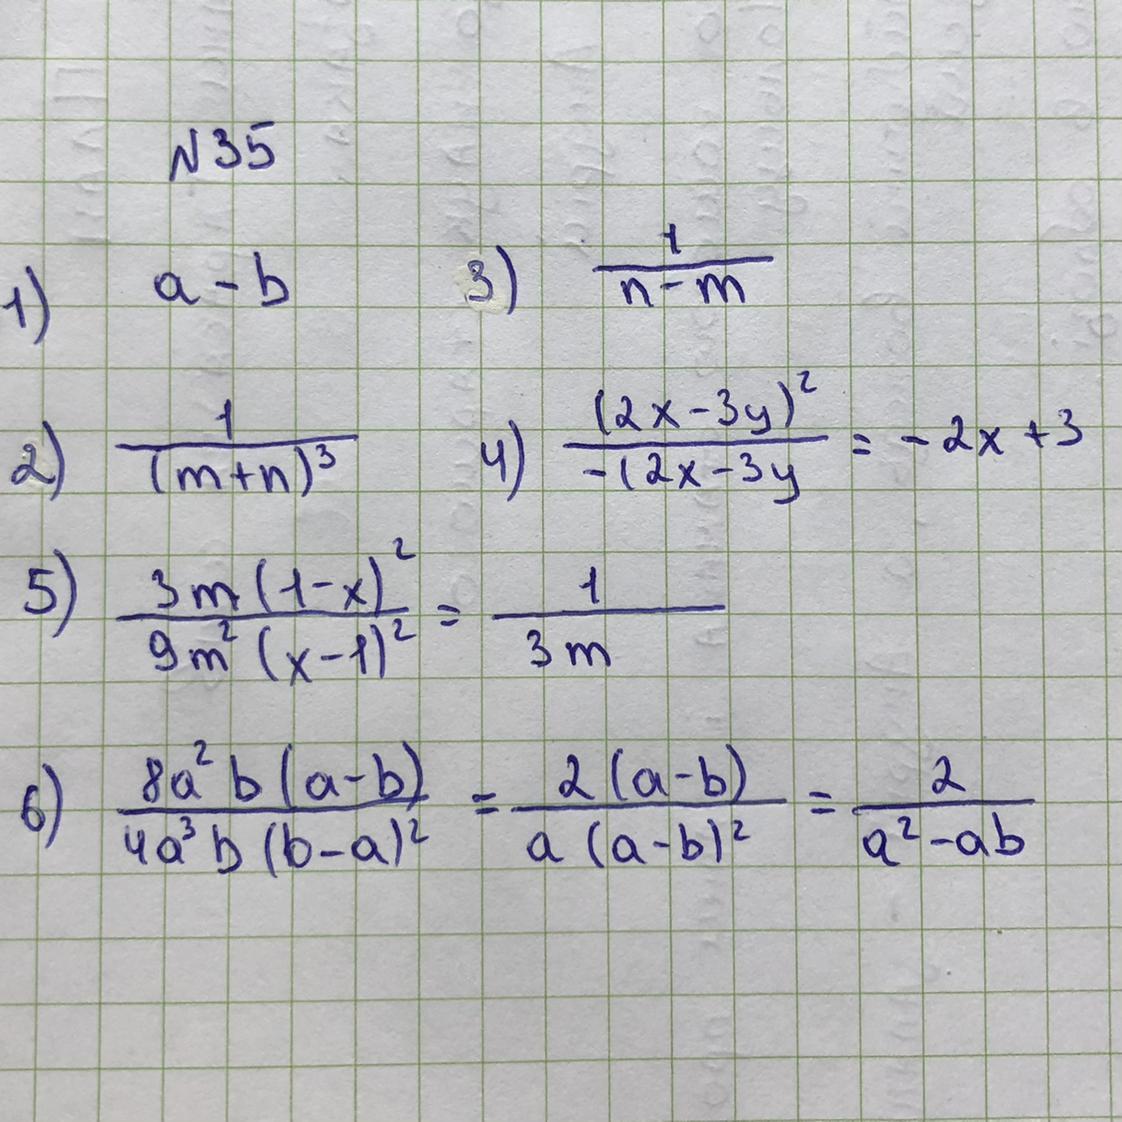 N35
1) a - b
2) 1/(m+n)³
3) 1/(n-m)
4) (2x-3y)²/-(2x-3y = -2x+3
5) 3m(1-x)²/9m²(x-1)² = 1/3m
6) 8a²b(a-b)/4a³b(b-a)² = 2(a-b)/a(a-b)² = 2/a²-ab